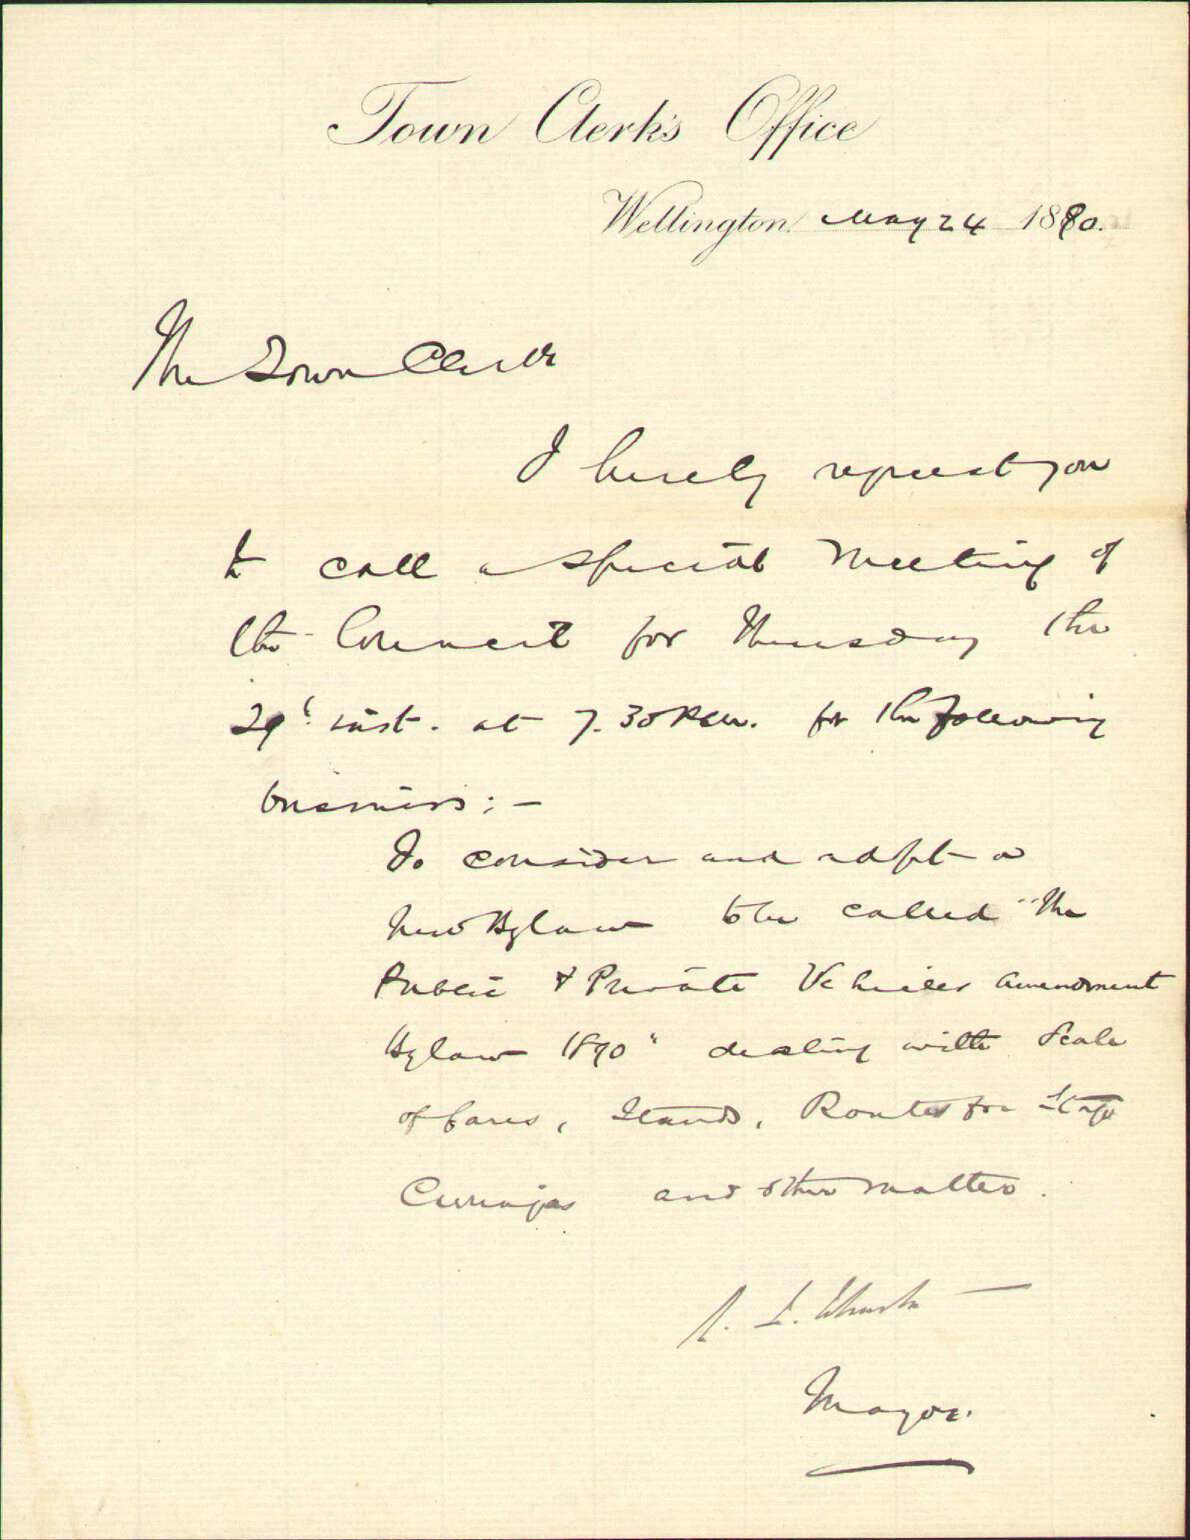 Town Clerk's Office
Wellington May 24 1890.
The Town Clerk
I hereby request you
to call a special meeting of
the Council for Thursday the
29t inst. at 7.30 P.M. for the following
business: —
To consider and adopt a
new Bylaw to be called "The
Public & Private Vehicles Amendment
Bylaw 1890" dealing with Scale
of fares, Stands, Routes for Stage
Carriages and other matters.
Mayor.